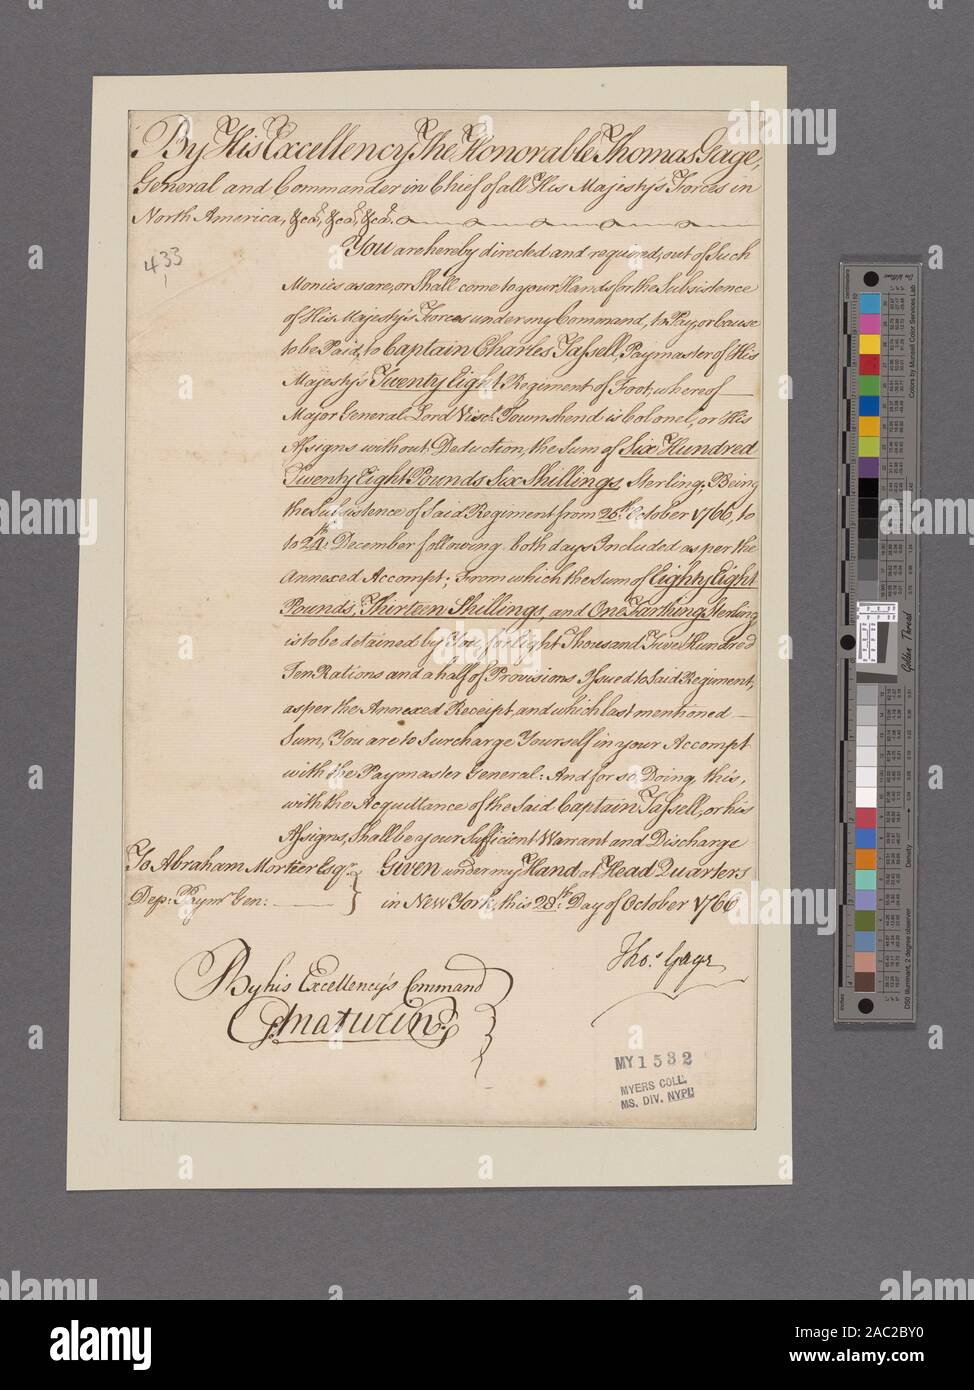 By His Excellency The Honorable Thomas Gage,
General and Commander in Chief of all His Majesty's Forces in
North America, &ca, &ca, &ca.
433
You are hereby directed and required, out of Such
Monies as are, or Shall come to your Hands for the Subsistence
of His Majesty's Forces under my Command, to Pay or Cause
to be Paid, to Captain Charles Tassell, Paymaster of His
Majesty's Twenty Eight Regiment of Foot, whereof
Major General Lord Visct. Townshend is Colonel, or His
Assigns without Deduction, the Sum of Six Hundred
Twenty Eight Pounds Six Shillings Sterling, Being
the Subsistence of Said Regiment from 25th October 1766, to
to 24th December following both days Included as per the
Annexed Accompt; From which the Sum of Eighty Eight
Pounds, Thirteen Shillings, and One Farthing Sterling
is to be detained by You, for Eight Thousand Five Hundred
Ten Rations and a half of Provisions Issued to Said Regiment,
as per the Annexed Receipt, and which last mentioned
Sum, You are to Surcharge Yourself in your Accompt
with the Paymaster General: And for so Doing, this,
with the Acquittance of the Said Captain Tassell, or his
Assigns, Shall be your Sufficient Warrant and Discharge
Given under my Hand at Head Quarters
in New York, this 28th Day of October 1766
To Abraham Mortier Esqr.
Dep: Paymr Gen:
Tho.s Gage
By his Excellency's Command
G Maturin
MY 1532
MYERS COLL.
MS. DIV. NYPL
Golden Thread
Colors by Munsell Color Services Lab
Density
D50 Illuminant, 2 degree observer
inches
alamy
www.alamy.com
Image ID: 2AC2BY0